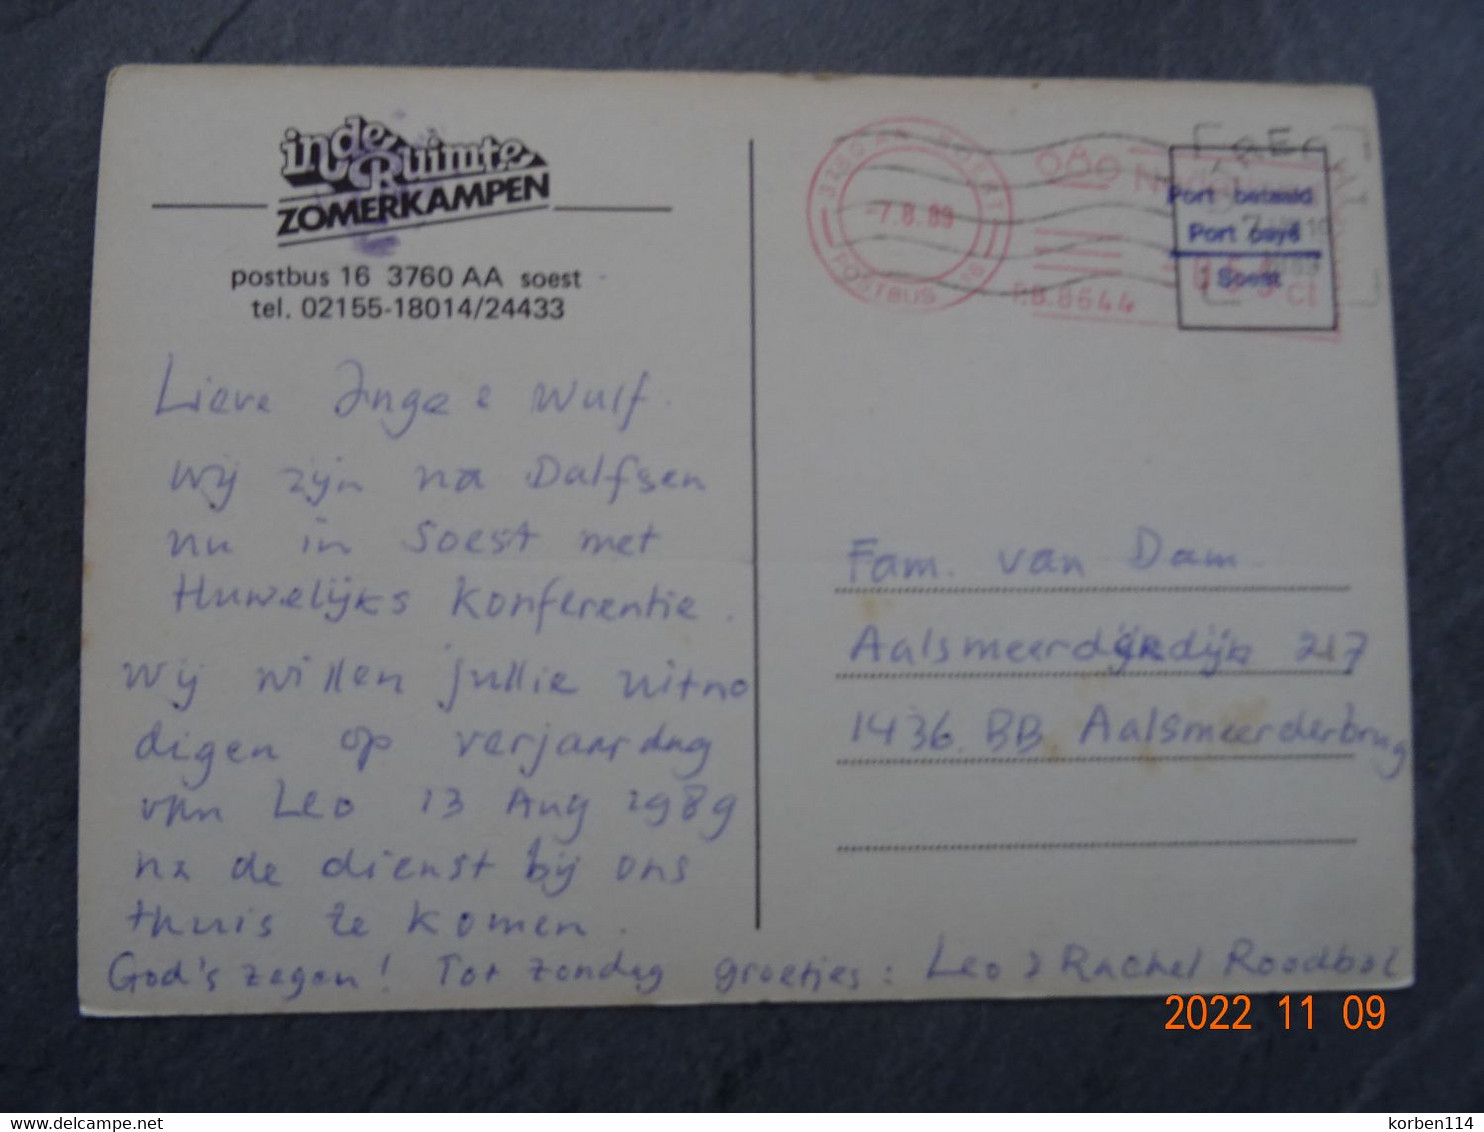 in de Ruimte
ZOMERKAMPEN
postbus 16 3760 AA soest
tel. 02155-18014/24433
Lieve Inge & Wulf.
Wij zijn na Dalfsen
nu in Soest met
Huwelijks Konferentie.
Wij willen jullie uitno
digen op verjaardag
van Leo 13 Aug 1989
na de dienst bij ons
thuis te komen.
God's zegen! Tot zondag groetjes: Leo & Rachel Roodbol
POSTBUS 16
-7.8.89
PB.8644
Port betaald
Port payé
Soest
ct
Fam. van Dam.
Aalsmeerderdijk 217
1436 BB Aalsmeerderbrug
2022 11 09
delcampe.net
korben114